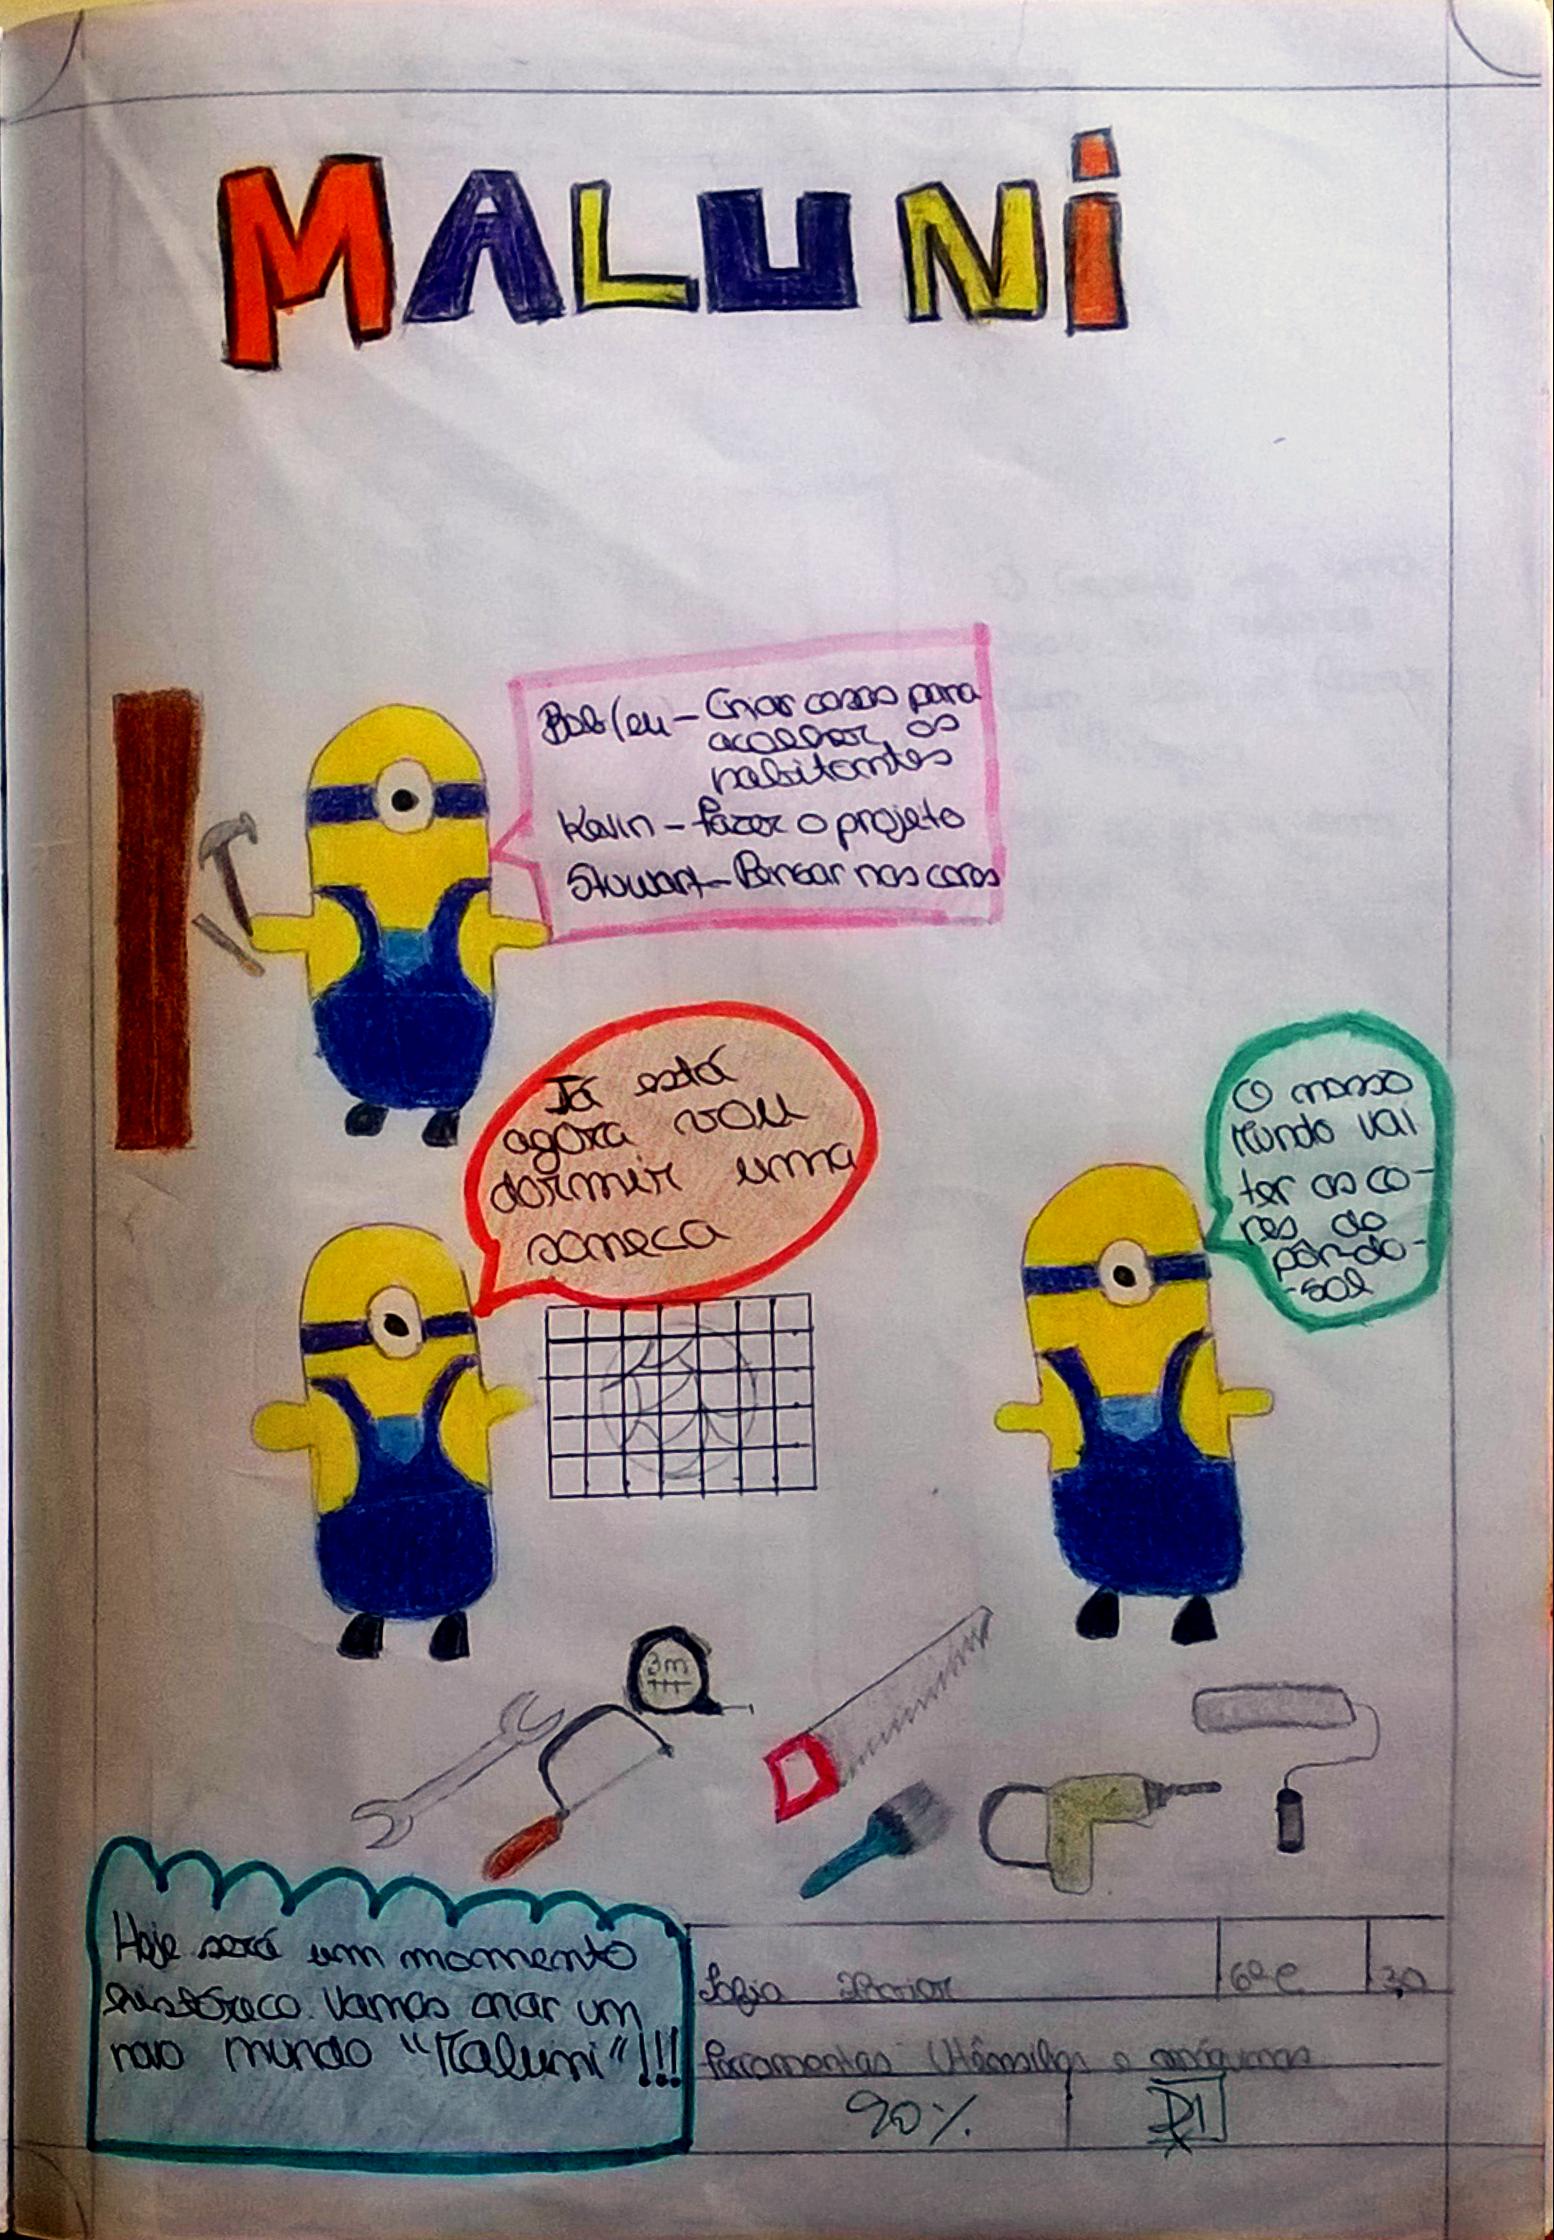 MALUNi
Bob/eu - Criar casas para
acolher os
habitantes
Kevin - fazer o projeto
Stuwart - Pensar nas cores
Já está
agora vou
dormir uma
soneca
O nosso
Mundo vai
ter as co-
res do
pôr-do-
-sol
3m
Hoje será um momento
histórico. Vamos criar um
novo mundo "Maluni"!!!
Sofia 6ºC
ferramentas Utênsilios e máquinas
90%